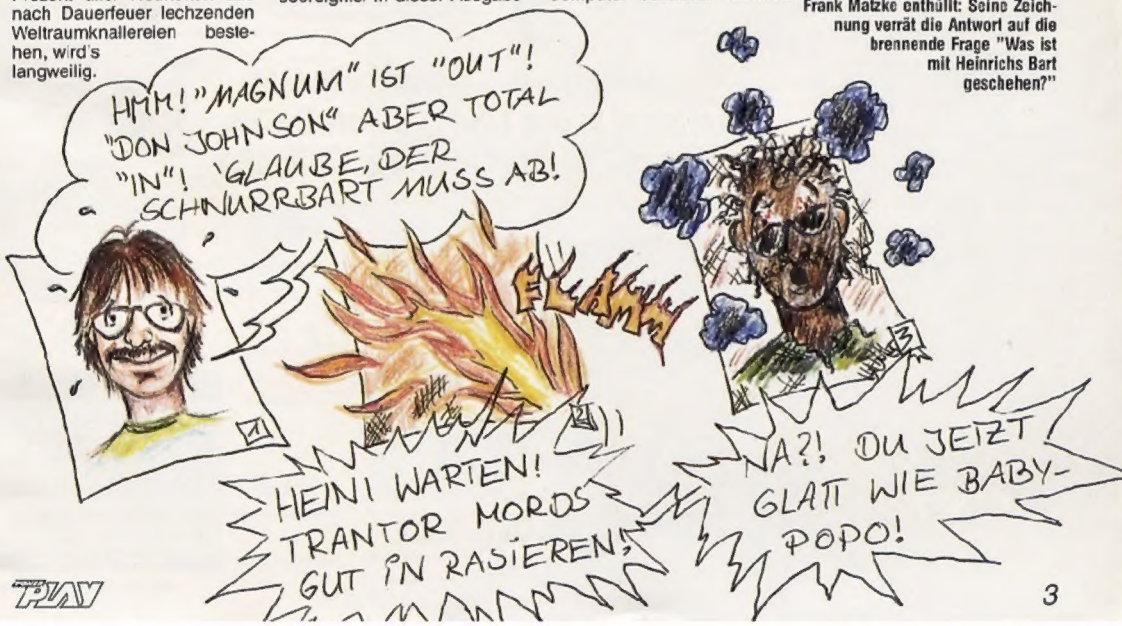 nach Dauerfeuer lechzenden
Weltraumknallereien beste-
hen, wird's
langweilig.
Frank Matzke enthüllt: Seine Zeich-
nung verrät die Antwort auf die
brennende Frage "Was ist
mit Heinrichs Bart
geschehen?"
HMM! "MAGNUM" IST "OUT"!
"DON JOHNSON" ABER TOTAL
"IN"! 'GLAUBE, DER
SCHNURRBART MUSS AB!
1
FLAMM
2
3
HEINI WARTEN!
TRANTOR MORDS
GUT IN RASIEREN!
NA?! DU JETZT
GLATT WIE BABY-
POPO!
POWER
PLAY
3